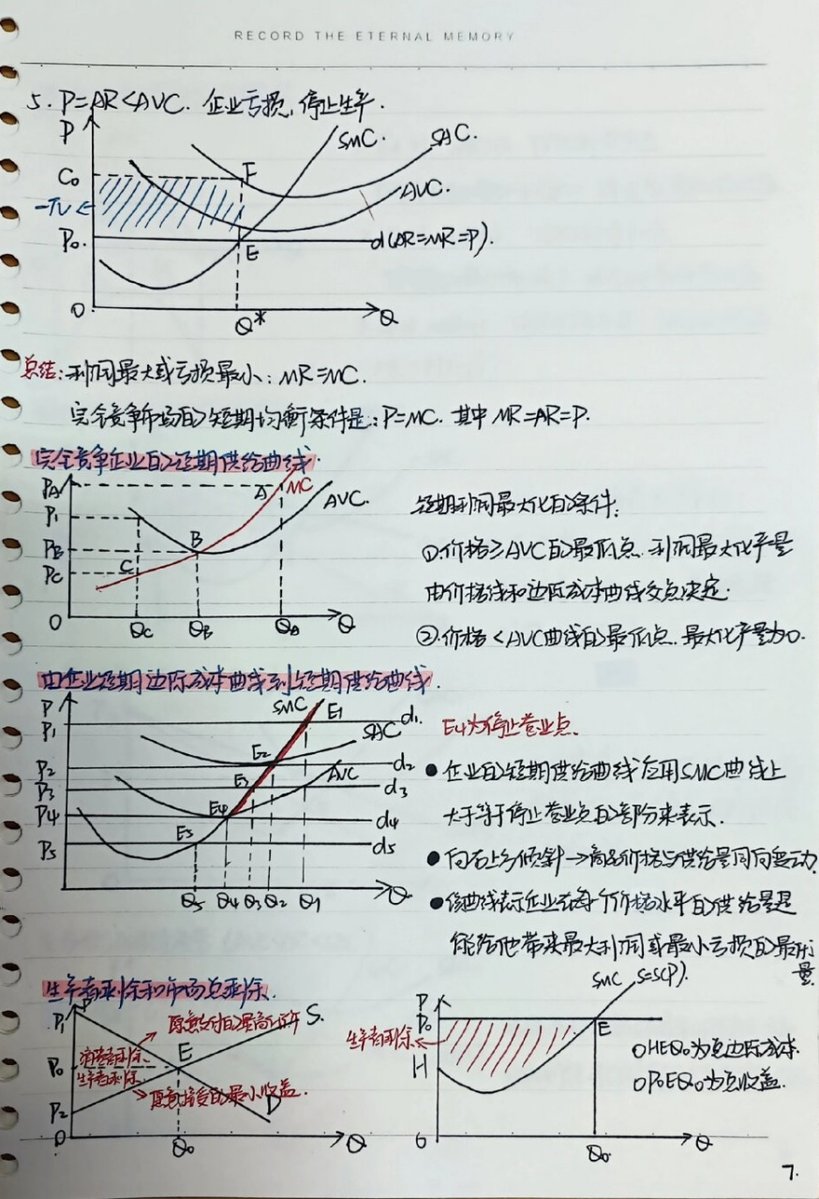 RECORD THE ETERNAL MEMORY
5. P=AR<AVC. 企业亏损,停止生产.
P
SMC.
SAC.
C₀
F
AVC.
-π
P₀.
d(AR=MR=P).
E
O
Q*
Q
总结:利润最大或亏损最小:MR=MC.
完全竞争市场的短期均衡条件是:P=MC. 其中 MR=AR=P.
完全竞争企业的短期供给曲线.
PA
A
MC
AVC.
P₁
PB
B
PC
C
O
QC
QB
QA
Q
短期利润最大化的条件:
①.价格≥AVC的最低点.利润最大化产量
由价格线和边际成本曲线交点决定.
②.价格<AVC曲线的最低点.最大化产量为0.
由企业短期边际成本曲线到短期供给曲线.
P
SMC
E₁
d₁.
P₁
SAC
E₂
d₂
P₂
AVC
E₃
d₃
P₃
E₄
d₄
P₄
E₅
d₅
P₅
Q₅
Q₄
Q₃
Q₂
Q₁
Q
E₄为停止营业点.
●企业的短期供给曲线应用SMC曲线上
大于等于停止营业点的部分来表示.
●向右上方倾斜→商品价格与供给量同向变动.
●该曲线表示企业在每个价格水平的供给量是
能给他带来最大利润或最小亏损的最产
量.
生产者剩余和市场总剩余.
P
P₁
愿意支付的最高价格
S.
消费者剩余.
P₀
E
生产者剩余.
愿意接受的最小收益.
P₂
D
O
Q₀
Q
P
SMC
S=S(P).
P₀
E
生产者剩余
H
O
Q₀
Q
OHEQ₀为总边际成本.
OP₀EQ₀为总收益.
7.